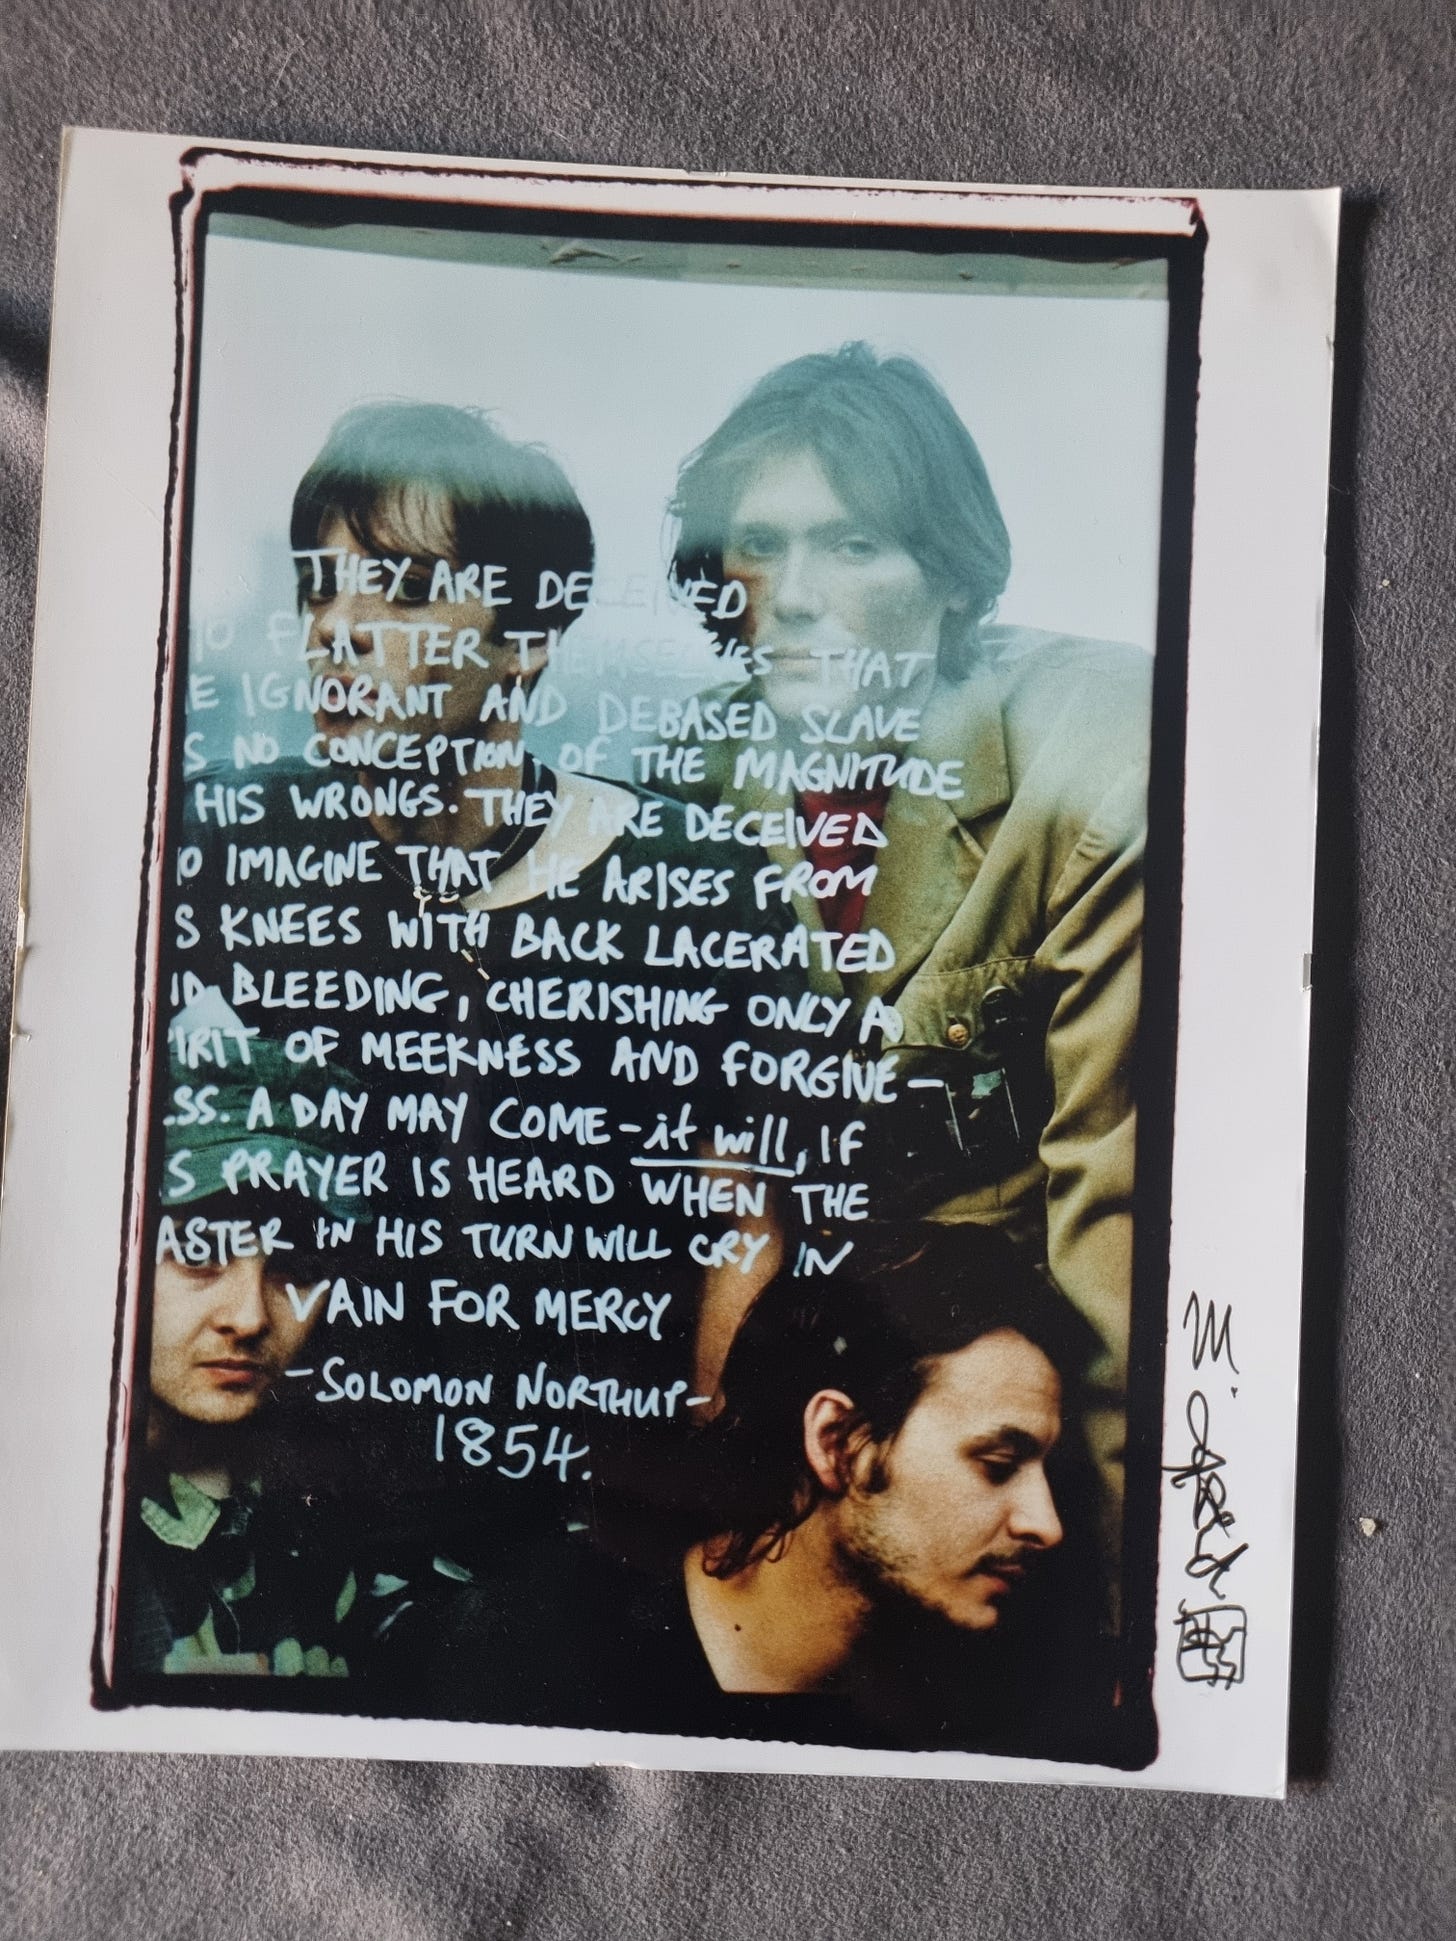 THEY ARE DECEIVED
FLATTER THEMSELVES THAT
E IGNORANT AND DEBASED SLAVE
S NO CONCEPTION OF THE MAGNITUDE
HIS WRONGS. THEY ARE DECEIVED
O IMAGINE THAT HE ARISES FROM
S KNEES WITH BACK LACERATED
ID BLEEDING, CHERISHING ONLY A
IRIT OF MEEKNESS AND FORGIVE-
SS. A DAY MAY COME - it will, IF
S PRAYER IS HEARD WHEN THE
ASTER IN HIS TURN WILL CRY IN
VAIN FOR MERCY
-SOLOMON NORTHUP-
1854.